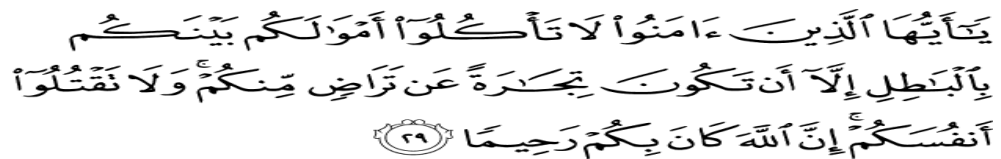 يَٰٓأَيُّهَا ٱلَّذِينَ ءَامَنُوا۟ لَا تَأْكُلُوٓا۟ أَمْوَٰلَكُم بَيْنَكُم
بِٱلْبَٰطِلِ إِلَّآ أَن تَكُونَ تِجَٰرَةً عَن تَرَاضٍ مِّنكُمْ ۚ وَلَا تَقْتُلُوٓا۟
أَنفُسَكُمْ ۚ إِنَّ ٱللَّهَ كَانَ بِكُمْ رَحِيمًا ٢٩